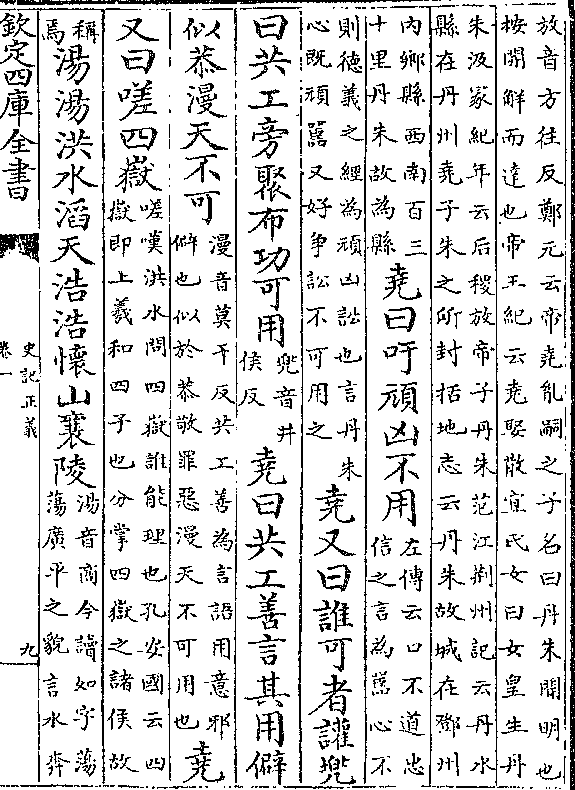 放音方往反鄭元云帝堯𦙍嗣之子名曰丹朱開明也
按開解而達也帝王紀云堯娶散宜氏女曰女皇生丹
朱汲冢紀年云后稷放帝子丹朱范汪荆州記云丹水
縣在丹州堯子朱之所封括地志云丹朱故城在鄧州
内鄉縣西南百三
十里丹朱故為縣
堯曰吁頑凶不用
左傳云口不道忠
信之言為嚚心不
則德義之經為頑凶訟也言丹朱
心既頑嚚又好爭訟不可用之
堯又曰誰可者讙兜
曰共工旁聚布功可用
兜音斗
侯反
堯曰共工善言其用僻
似恭漫天不可
漫音莫干反共工善為言語用意邪
僻也似於恭敬罪惡漫天不可用也
堯
又曰嗟四嶽
嗟嘆洪水問四嶽誰能理也孔安國云四
嶽即上羲和四子也分掌四嶽之諸侯故
稱
焉
湯湯洪水滔天浩浩懷山襄陵
湯音商今讀如字蕩
蕩廣平之貌言水奔
欽定四庫全書
史記正義
卷一
九